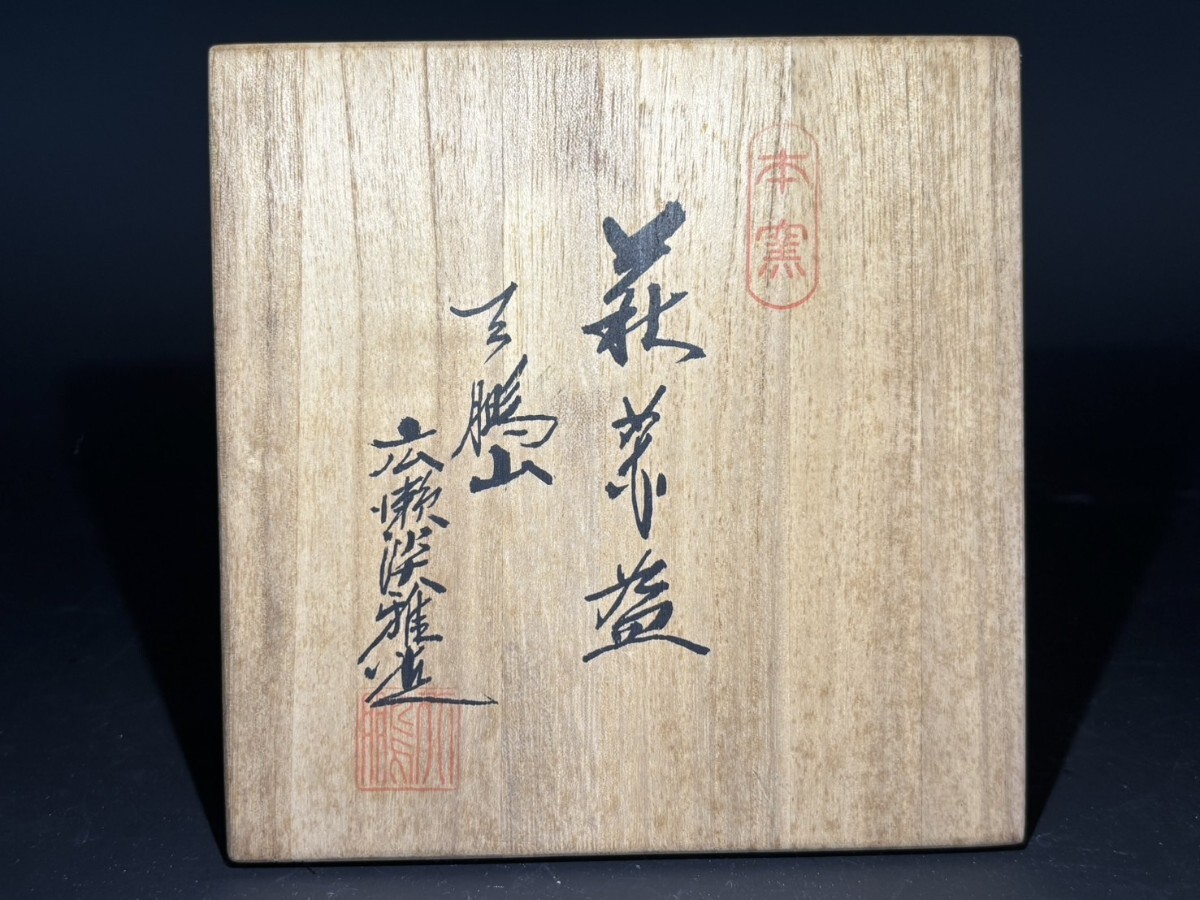 本窯
萩茶盌
天鵬山
広瀬淡雅造
天鵬